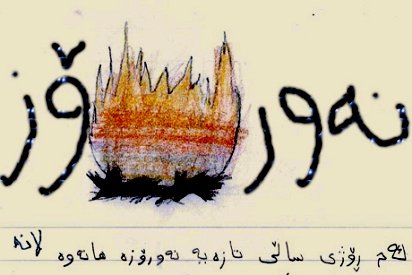 نەورۆز
ئەم ڕۆژی ساڵی تازەیە نەورۆزە هاتەوە